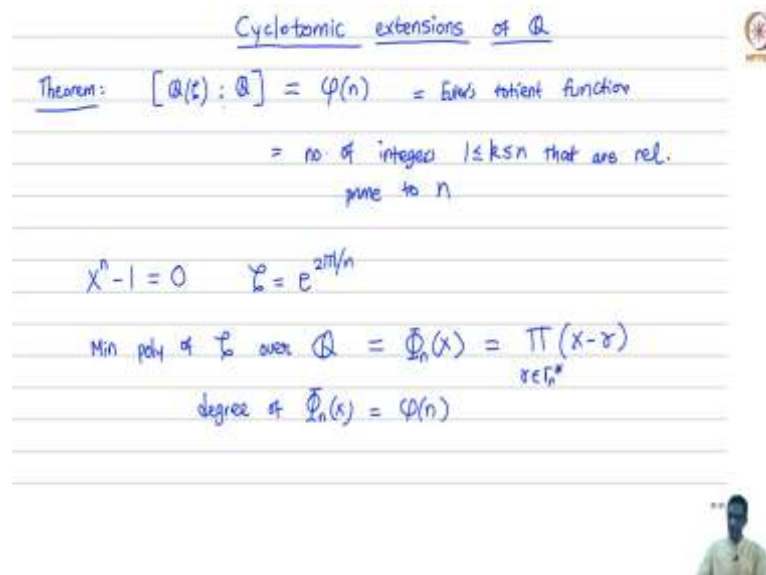 Cyclotomic extensions of ℚ
Theorem: [ℚ(ζ) : ℚ] = φ(n) = Euler's totient function
= no. of integers 1≤k≤n that are rel.
prime to n
xⁿ - 1 = 0 ζ = e^{2πi/n}
Min poly of ζ over ℚ = Φₙ(x) = ∏ (x-γ)
γ∈Γₙ*
degree of Φₙ(x) = φ(n)